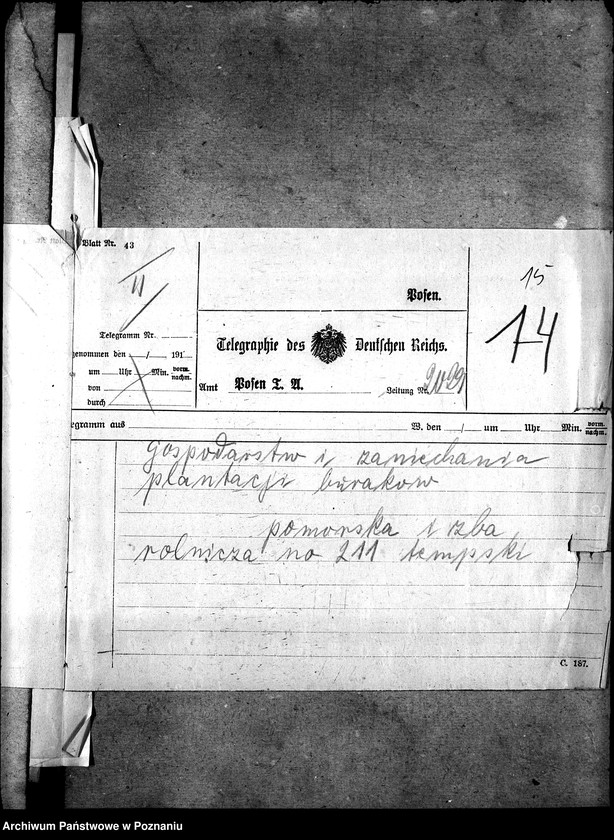 Blatt Nr. 43
II
15
Posen.
14
Telegramm Nr.
Telegraphie des Deutschen Reichs.
genommen den / 191
um Uhr Min. vorm. nachm.
von
Amt Posen T. A. Leitung Nr.
durch
egramm aus W. den / um Uhr Min. vorm. nachm.
gospodarstw i zaniechania
plantacji burakow
pomorska izba
rolnicza no 211 tempski
C. 187.
Archiwum Państwowe w Poznaniu